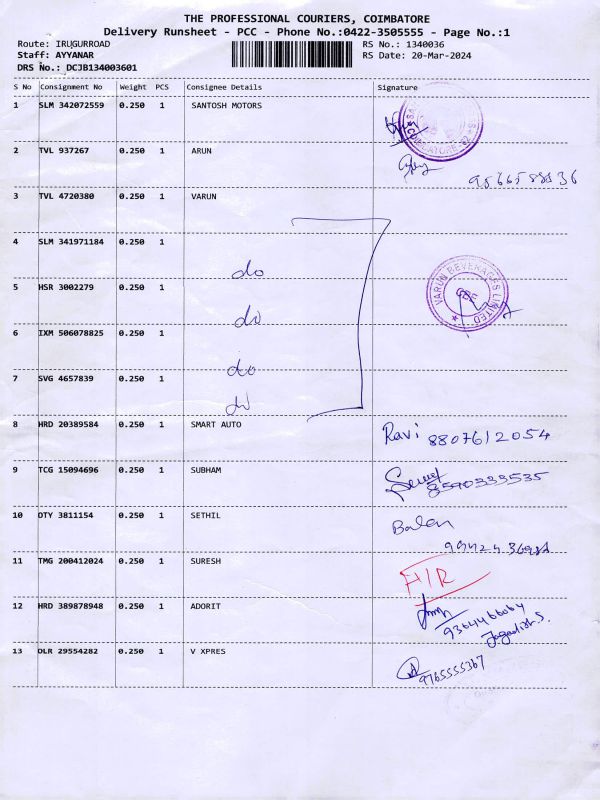 THE PROFESSIONAL COURIERS, COIMBATORE
Delivery Runsheet - PCC - Phone No.:0422-3505555 - Page No.:1
Route: IRUGURROAD RS No.: 1340036
Staff: AYYANAR RS Date: 20-Mar-2024
DRS No.: DCJB134003601
S No Consignment No Weight PCS Consignee Details Signature
1 SLM 342072559 0.250 1 SANTOSH MOTORS
2 TVL 937267 0.250 1 ARUN
3 TVL 4720380 0.250 1 VARUN
4 SLM 341971184 0.250 1 do
VARUN BEVERAGES LIMITED
5 HSR 3002279 0.250 1 do
6 IXM 506078825 0.250 1 do
7 SVG 4657839 0.250 1 do
8 HRD 20389584 0.250 1 SMART AUTO Ravi 8807612054
9 TCG 15094696 0.250 1 SUBHAM
8590333535
10 OTY 3811154 0.250 1 SETHIL Balan
11 TMG 200412024 0.250 1 SURESH
12 HRD 389878948 0.250 1 ADORIT
9364466064
13 DLR 29554282 0.250 1 V XPRES
9765555367